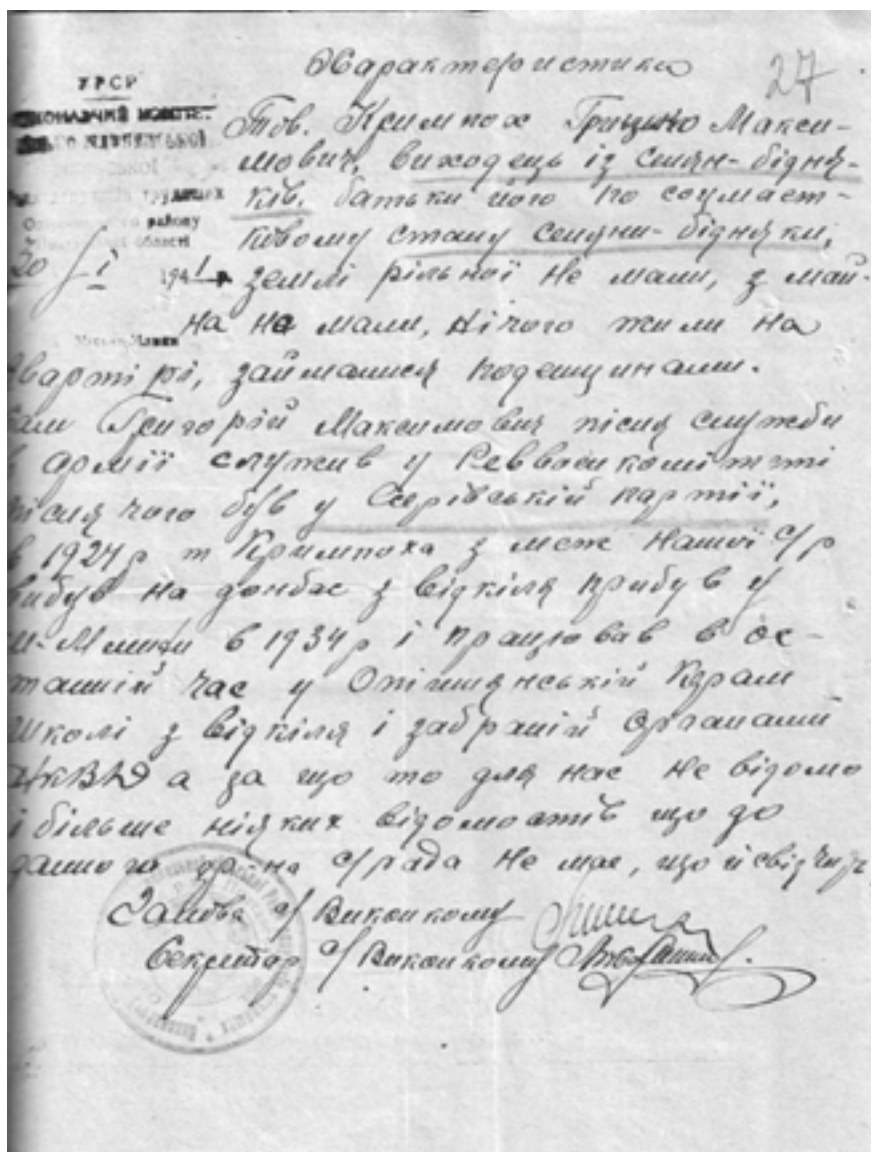 Характеристика
27
УРСР
Тов. Кримпох Грицько Макси-
мович, виходець із селян-бідня-
ків. батьки його по соцмаєт-
ковому стану селяни-бідняки,
району
області
20/I 1941 р.
землі рільної не мали, з май-
на не мали, нічого жили на
квартірі, займалися поденщинами.
Сам Григорій Максимович після служби
в армії служив у Реввоєнкомітеті
після чого був у Есерівській партії,
в 1924 р т Кримпоха з меж нашої с/р
вибув на донбас з відкіля прибув у
м-Млини в 1934 р і працював в ос-
танній час у Опішнянській Керам
Школі з відкіля і забраній органами
НКВД а за що то для нас не відомо
і більше ніяких відомостів що до
даного гр-на с/рада не має, що й свідчить
Голова с/Виконкому
Секретар с/Виконкому